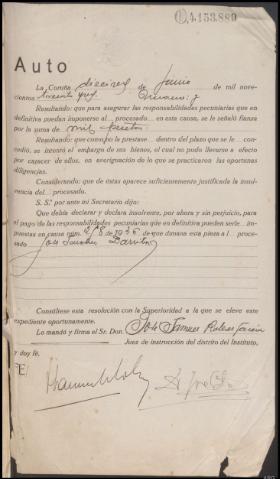 4.153.880
Auto
La Coruña dieciseis de Junio de mil nove-
cientos treinta y seis
Resultando: que para asegurar las responsabilidades pecuniarias que en
definitiva puedan imponerse al procesado en esta causa, se le señaló fianza
por la suma de mil pesetas
Resultando: que como no la prestase dentro del plazo que se le con-
cedió, se incoó el embargo de sus bienes, el cual no pudo llevarse a efecto
por carecer de ellos, en averiguación de lo que se practicaron las oportunas
diligencias.
Considerando: que de éstas aparece suficientemente justificada la insol-
vencia del procesado.
S. Sª por ante mí Secretario dijo:
Que debía declarar y declara insolvente, por ahora y sin perjuicio, para
el pago de las responsabilidades pecuniarias que en definitiva pueden serle im-
puestas en causa núm. 218 de 1936 de que dimana esta pieza a l proce-
sado José Sanchez
Consúltese esta resolución con la Superioridad a la que se eleve este
expediente oportunamente.
Lo mandó y firma el Sr. Don José Samuel
Juez de instrucción del distrito del Instituto,
y doy fé.
E